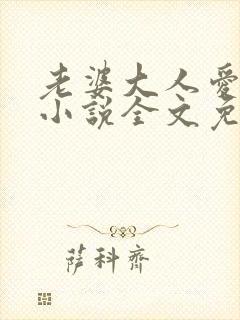 老婆大人愛
小說全文免
薩科齊